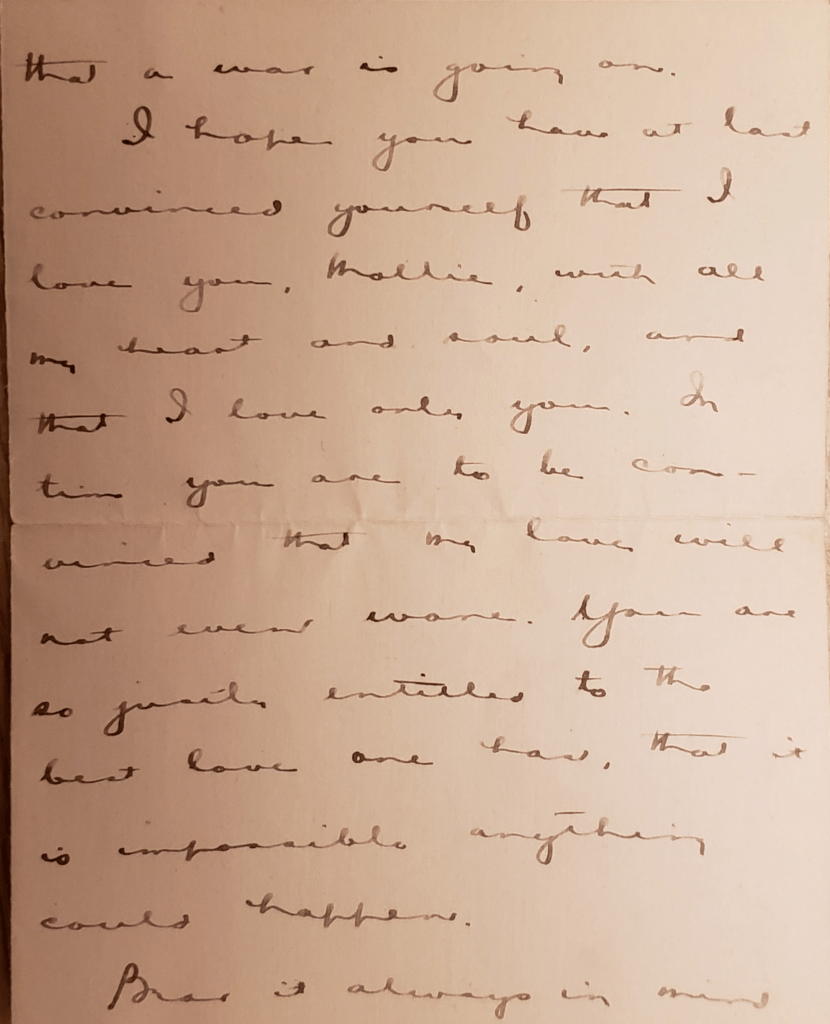 that a war is going on.
I hope you have at last
convinced yourself that I
love you, Mollie, with all
my heart and soul, and
that I love only you. In
time you are to be con-
vinced that my love will
not even wane. You are
so justly entitled to the
best love one has, that it
is impossible anything
could happen.
Bear it always in mind